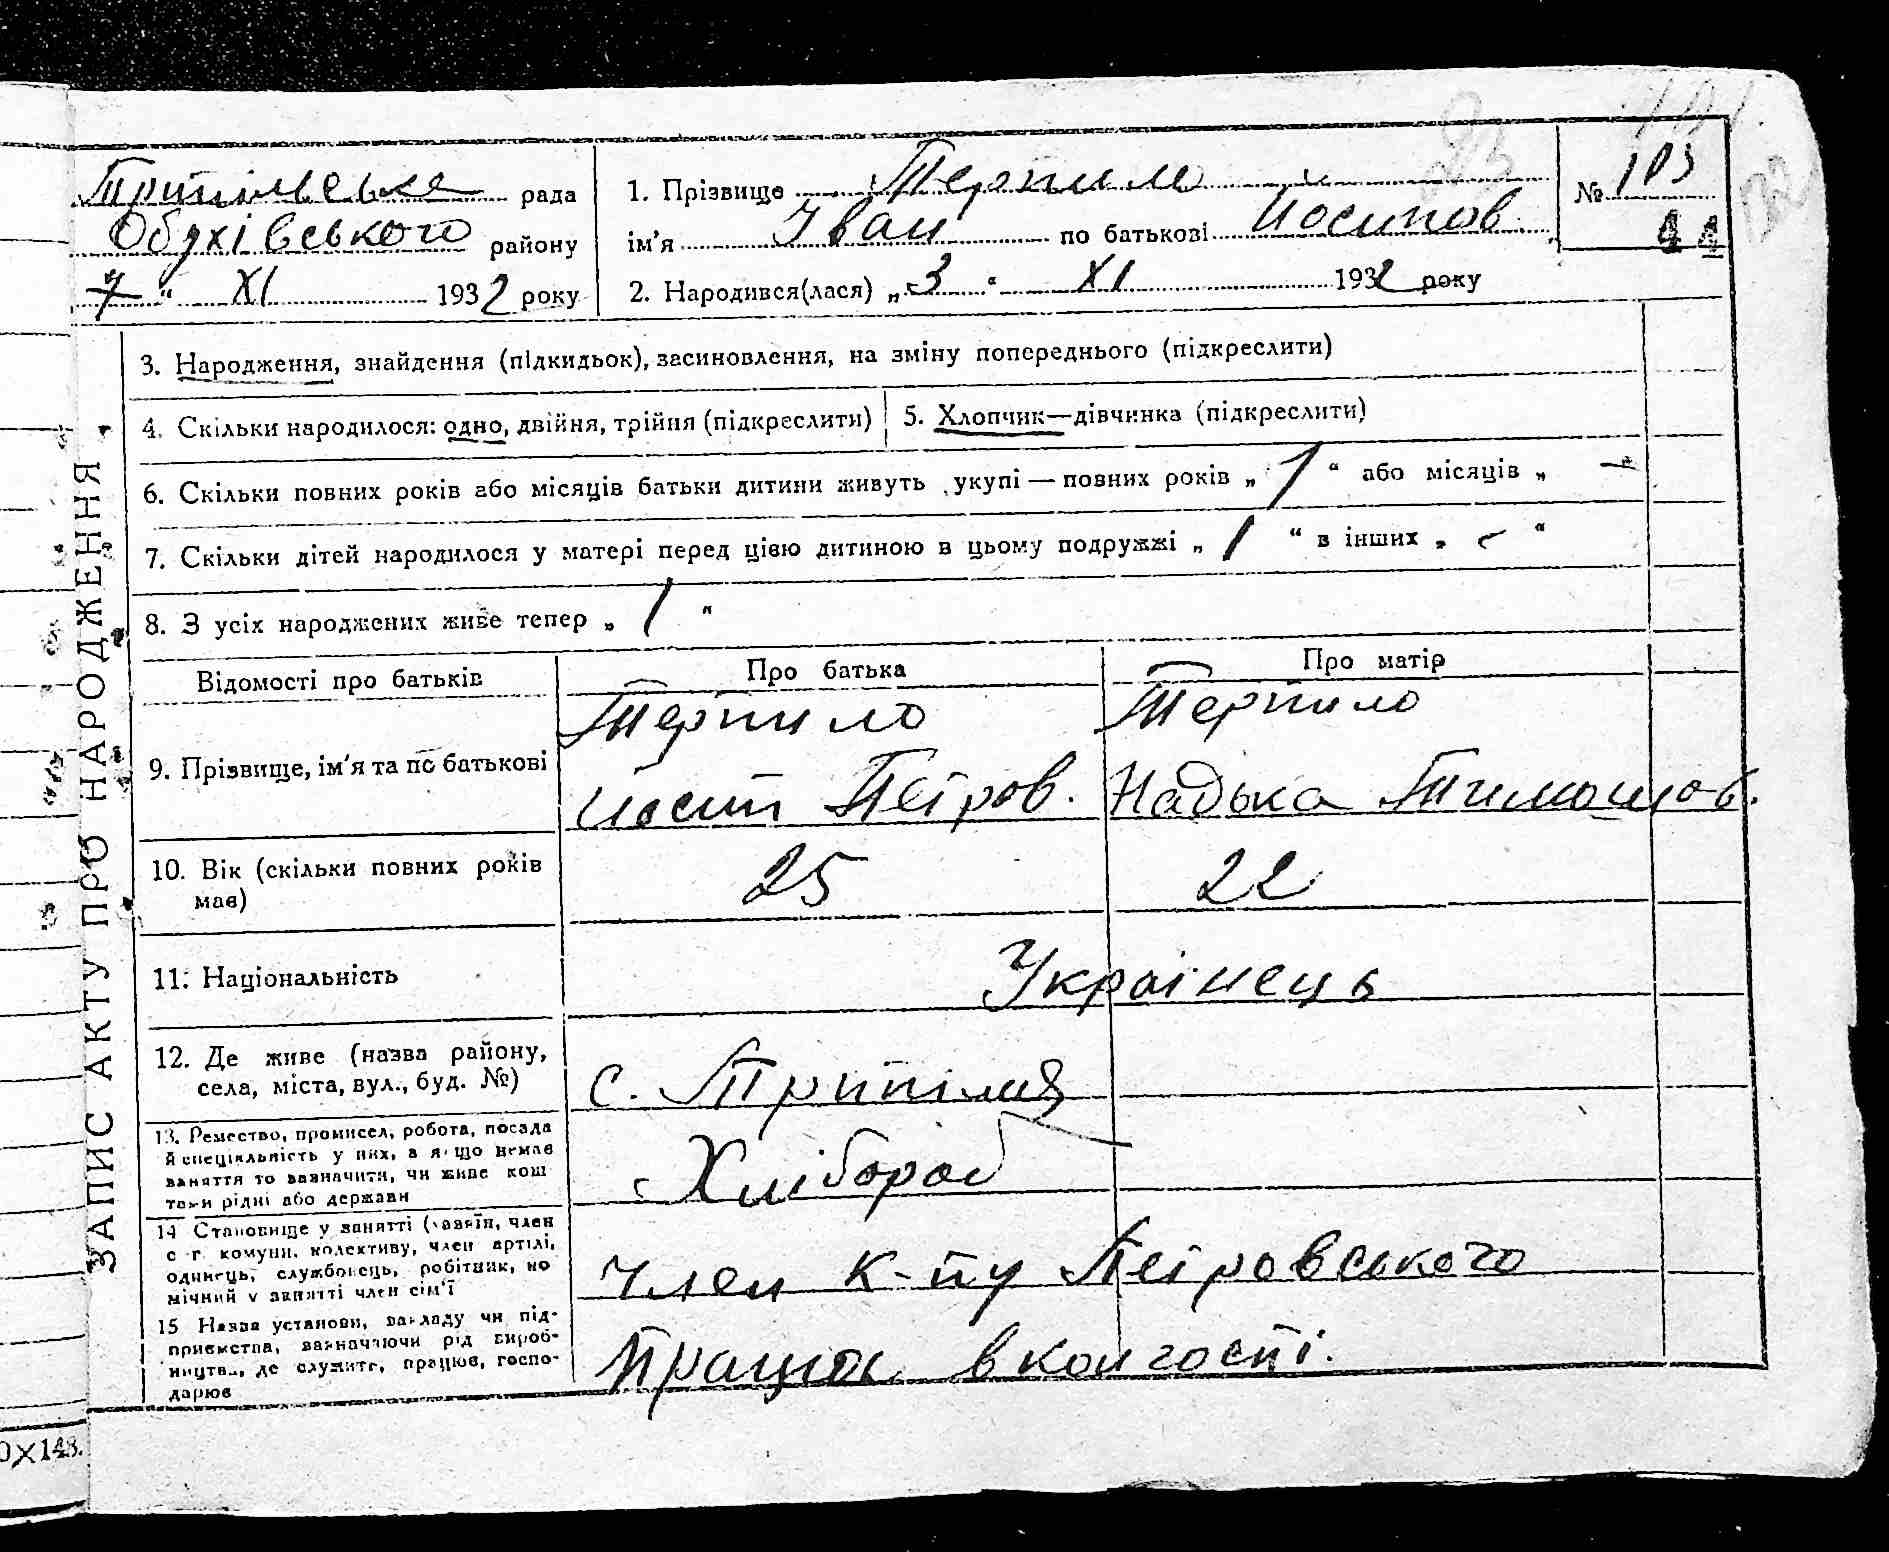 Трипільська рада
Обухівського району
"7" XI 1932 року
1. Прізвище Терпило
ім'я Іван по батькові Йосипов.
2. Народився(лася) „3“ XI 1932 року
№ 103
3. Народження, знайдення (підкидьок), засиновлення, на зміну попереднього (підкреслити)
4. Скільки народилося: одно, двійня, трійня (підкреслити)
5. Хлопчик—дівчинка (підкреслити)
6. Скільки повних років або місяців батьки дитини живуть укупі — повних років „1“ або місяців „ —
7. Скільки дітей народилося у матері перед цією дитиною в цьому подружжі „1“ в інших „ – “
8. З усіх народжених живе тепер „1“
ЗАПИС АКТУ ПРО НАРОДЖЕННЯ
Відомості про батьків
Про батька
Про матір
9. Прізвище, ім'я та по батькові
Терпило
Йосип Петров.
Терпило
Надька Тимошов.
10. Вік (скільки повних років
має)
25
22
11. Національність
Українець
12. Де живе (назва району,
села, міста, вул., буд. №)
с. Трипілля
13. Ремество, промисел, робота, посада
й спеціяльність у них, а якщо немає
заняття то зазначити, чи живе кош
тами рідні або держави
Хлібороб
14 Становище у занятті (хазяїн, член
с г. комуни, колективу, член артілі,
одинець, службовець, робітник, по
мічний у занятті член сім'ї
Член к-пу Петровського
15 Назва установи, закладу чи під-
приємства, зазначаючи рід вироб-
ництва, де служить, працює, госпо-
дарює
Працює в колгоспі.
0×148.